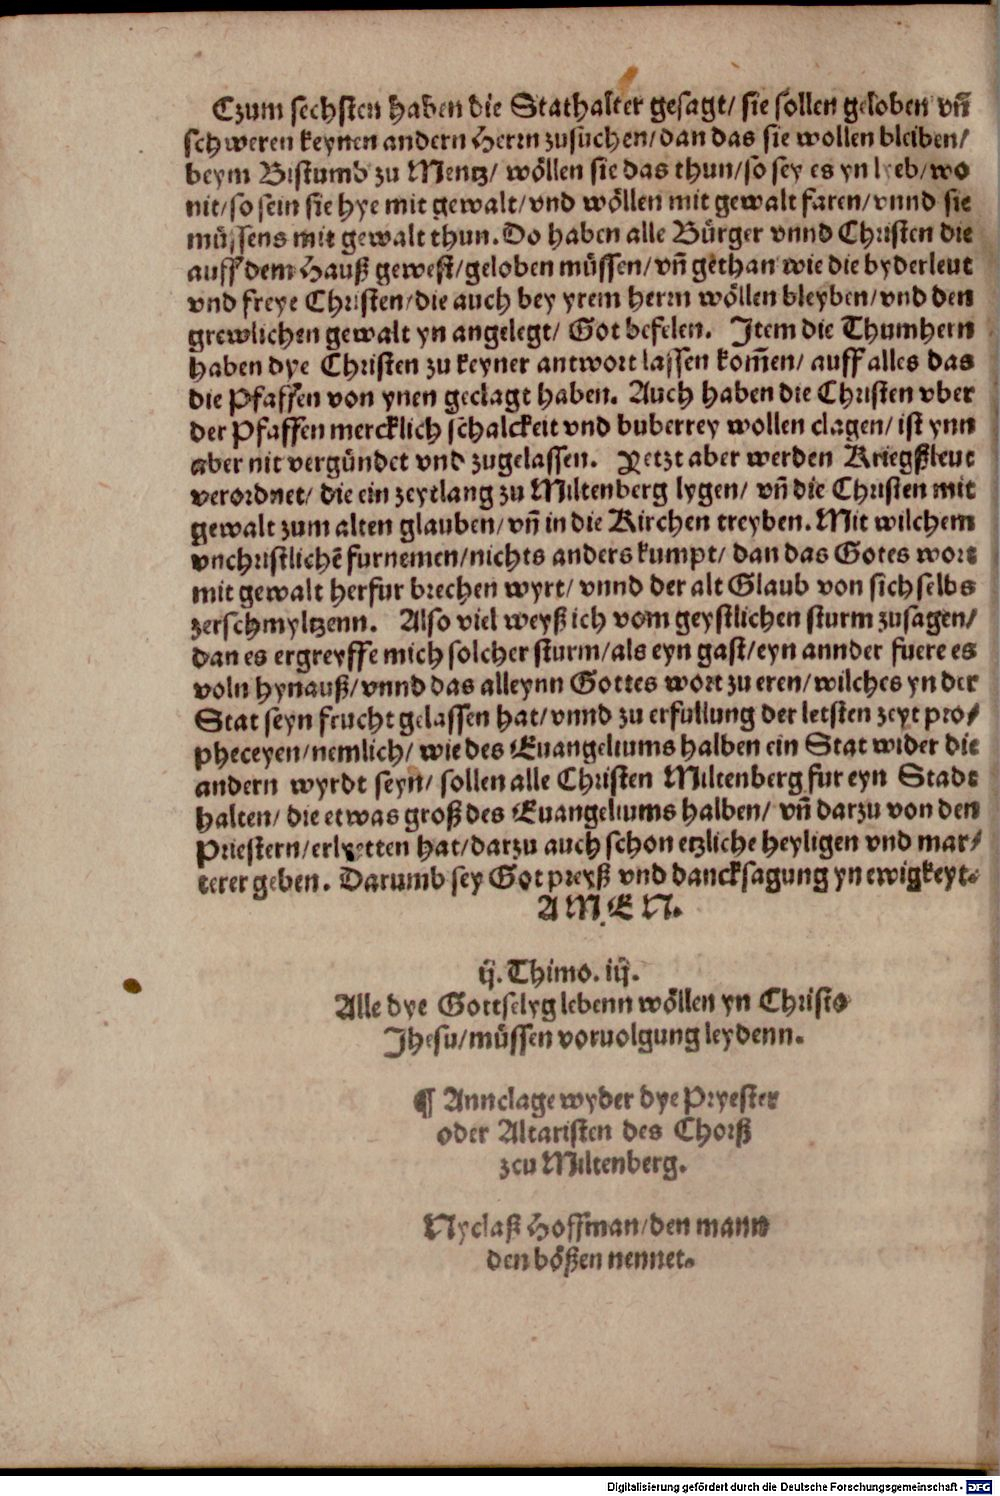 Czum sechsten haben die Stathalter gesagt/ sie sollen geloben vn̄
schweren keynen andern Herrn zusuchen/dan das sie wollen bleiben/
beym Bistumb zu Mentz/ wöllen sie das thun/so sey es yn lyeb/wo
nit/so sein sie hye mit gewalt/vnd wöllen mit gewalt faren/vnnd sie
müssens mit gewalt thun. Do haben alle Bürger vnnd Christen die
auff dem Hauß gewest/geloben müssen/vn̄ gethan wie die byderleut
vnd freye Christen/die auch bey yrem herrn wöllen bleyben/vnd den
grewlichen gewalt yn angelegt/ Got befelen. Item die Thumhern
haben dye Christen zu keyner antwort lassen kom̄en/ auff alles das
die Pfaffen von ynen geclagt haben. Auch haben die Christen vber
der Pfaffen mercklich schalckeit vnd buberrey wollen clagen/ ist ynn
aber nit vergündet vnd zugelassen. Yetzt aber werden Kriegßleut
verordnet/ die ein zeytlang zu Miltenberg lygen/ vn̄ die Christen mit
gewalt zum alten glauben/vn̄ in die Kirchen treyben. Mit wilchem
vnchristlichē furnemen/nichts anders kumpt/ dan das Gotes wort
mit gewalt herfur brechen wyrt/ vnnd der alt Glaub von sich selbs
zerschmyltzenn. Also viel weyß ich vom geystlichen sturm zusagen/
dan es ergreyffe mich solcher sturm/als eyn gast/eyn annder fuere es
voln hynauß/vnnd das alleynn Gottes wort zu eren/wilches yn der
Stat seyn frucht gelassen hat/vnnd zu erfullung der letsten zeyt pro/
pheceyen/nemlich/ wie des Euangeliums halben ein Stat wider die
andern wyrdt seyn/ sollen alle Christen Miltenberg fur eyn Stadt
halten/ die etwas groß des Euangeliums halben/ vn̄ darzu von den
Priestern/erlyetten hat/darzu auch schon etzliche heyligen vnd mar/
terer geben. Darumb sey Got preyß vnd dancksagung yn ewigkeyt.
A M E N.
ij. Thimo. iij.
Alle dye Gottselyg lebenn wöllen yn Christo
Jhesu/müssen voruolgung leydenn.
¶ Annclage wyder dye Pryester
oder Altaristen des Chorß
zcu Miltenberg.
Nyclaß Hoffman/den mann
den bößen nennet.
Digitalisierung gefördert durch die Deutsche Forschungsgemeinschaft - DFG